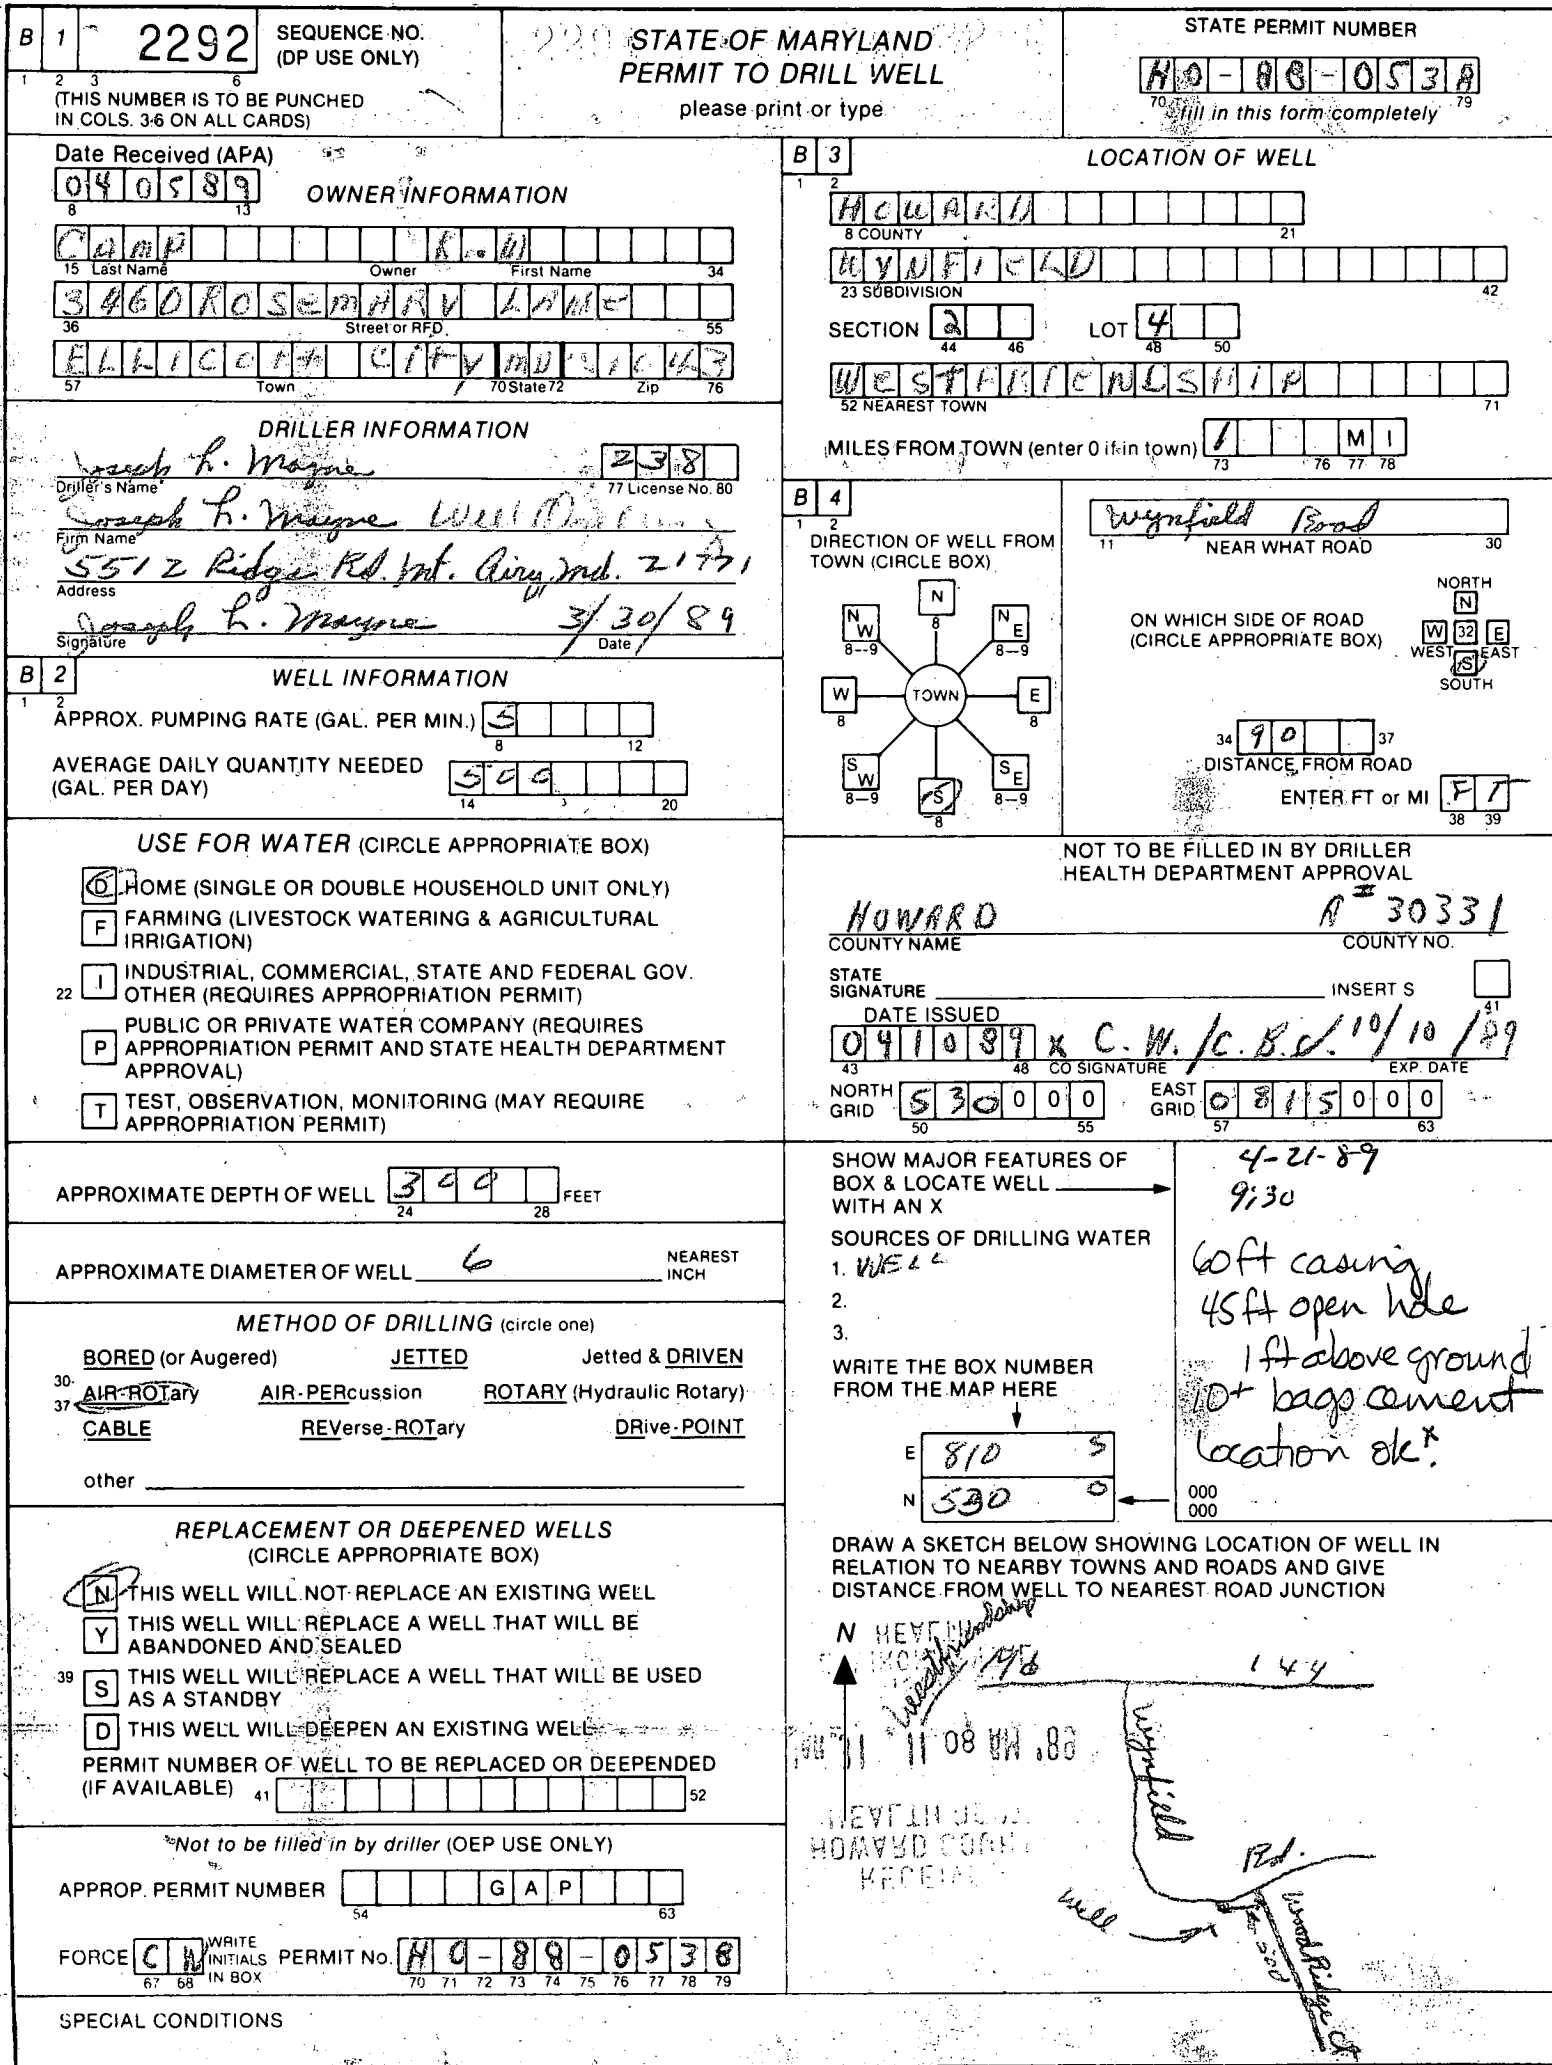 B 1 2292 SEQUENCE NO. (DP USE ONLY)
1 2 3 6
(THIS NUMBER IS TO BE PUNCHED
IN COLS. 3-6 ON ALL CARDS)
STATE OF MARYLAND
PERMIT TO DRILL WELL
please print or type
STATE PERMIT NUMBER
HO-88-053
70 79
fill in this form completely
Date Received (APA)
040589
8 13
OWNER INFORMATION
Camp R.W
15 Last Name Owner First Name 34
3460 ROSEMARY LANE
36 Street or RFD 55
ELLICOTT CITY MD 21043
57 Town 70 State 72 Zip 76
DRILLER INFORMATION
Joseph L. Mayne 238
Driller's Name 77 License No. 80
Joseph L. Mayne Well
Firm Name
5512 Ridge Rd. Mt. Airy, Md. 21771
Address
Joseph L. Mayne 3/30/89
Signature Date
B 2 WELL INFORMATION
1 2
APPROX. PUMPING RATE (GAL. PER MIN.) 5
8 12
AVERAGE DAILY QUANTITY NEEDED
(GAL. PER DAY) 500
14 20
USE FOR WATER (CIRCLE APPROPRIATE BOX)
D HOME (SINGLE OR DOUBLE HOUSEHOLD UNIT ONLY)
F FARMING (LIVESTOCK WATERING & AGRICULTURAL
IRRIGATION)
22 I INDUSTRIAL, COMMERCIAL, STATE AND FEDERAL GOV.
OTHER (REQUIRES APPROPRIATION PERMIT)
P PUBLIC OR PRIVATE WATER COMPANY (REQUIRES
APPROPRIATION PERMIT AND STATE HEALTH DEPARTMENT
APPROVAL)
T TEST, OBSERVATION, MONITORING (MAY REQUIRE
APPROPRIATION PERMIT)
APPROXIMATE DEPTH OF WELL 300 FEET
24 28
APPROXIMATE DIAMETER OF WELL 6 NEAREST
INCH
METHOD OF DRILLING (circle one)
BORED (or Augered) JETTED Jetted & DRIVEN
30-
37 AIR-ROTary AIR-PERcussion ROTARY (Hydraulic Rotary)
CABLE REVerse-ROTary DRive-POINT
other
REPLACEMENT OR DEEPENED WELLS
(CIRCLE APPROPRIATE BOX)
N THIS WELL WILL NOT REPLACE AN EXISTING WELL
Y THIS WELL WILL REPLACE A WELL THAT WILL BE
ABANDONED AND SEALED
39 S THIS WELL WILL REPLACE A WELL THAT WILL BE USED
AS A STANDBY
D THIS WELL WILL DEEPEN AN EXISTING WELL
PERMIT NUMBER OF WELL TO BE REPLACED OR DEEPENDED
(IF AVAILABLE) 41 52
Not to be filled in by driller (OEP USE ONLY)
APPROP. PERMIT NUMBER GAP
54 63
FORCE C W WRITE INITIALS IN BOX PERMIT No. HO-88-0538
67 68 70 71 72 73 74 75 76 77 78 79
SPECIAL CONDITIONS
B 3 LOCATION OF WELL
1 2
HOWARD
8 COUNTY 21
WYNFIELD
23 SUBDIVISION 42
SECTION 2 LOT 4
44 46 48 50
WESTFRIENDSHIP
52 NEAREST TOWN 71
MILES FROM TOWN (enter 0 if in town) 1 MI
73 76 77 78
B 4
1 2
DIRECTION OF WELL FROM
TOWN (CIRCLE BOX)
N
8
NW NE
8--9 8--9
W TOWN E
8 8
SW S SE
8--9 8 8--9
Wynfield Road
11 NEAR WHAT ROAD 30
ON WHICH SIDE OF ROAD
(CIRCLE APPROPRIATE BOX)
NORTH
N
W 32 E
WEST EAST
S
SOUTH
34 90 37
DISTANCE FROM ROAD
ENTER FT or MI FT
38 39
NOT TO BE FILLED IN BY DRILLER
HEALTH DEPARTMENT APPROVAL
HOWARD A# 30331
COUNTY NAME COUNTY NO.
STATE
SIGNATURE INSERT S
41
DATE ISSUED
041089 x C.W./C.B. 10/10/89
43 48 CO SIGNATURE EXP. DATE
NORTH
GRID 530000 EAST
GRID 0815000
50 55 57 63
SHOW MAJOR FEATURES OF
BOX & LOCATE WELL
WITH AN X
SOURCES OF DRILLING WATER
1. WELL
2.
3.
WRITE THE BOX NUMBER
FROM THE MAP HERE
E 810 5
N 530 0
4-21-89
9:30
60ft casing
45ft open hole
1ft above ground
10+ bags cement
Location ok.
000
000
DRAW A SKETCH BELOW SHOWING LOCATION OF WELL IN
RELATION TO NEARBY TOWNS AND ROADS AND GIVE
DISTANCE FROM WELL TO NEAREST ROAD JUNCTION
N
West Friendship
Md 144
Wynfield
Rd.
Well
WoodRidge Ct
HOWARD COUN